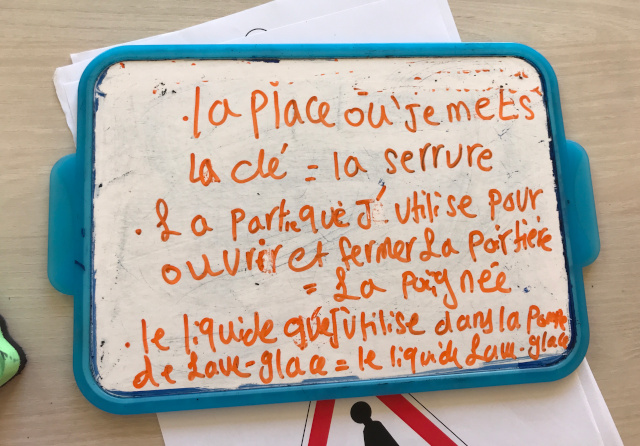 . la place où je mets
la clé = la serrure
. La partie que j'utilise pour
ouvrir et fermer la portière
= La poignée
. le liquide que j'utilise dans la pompe
de Lave-glace = le liquide Lave-glace